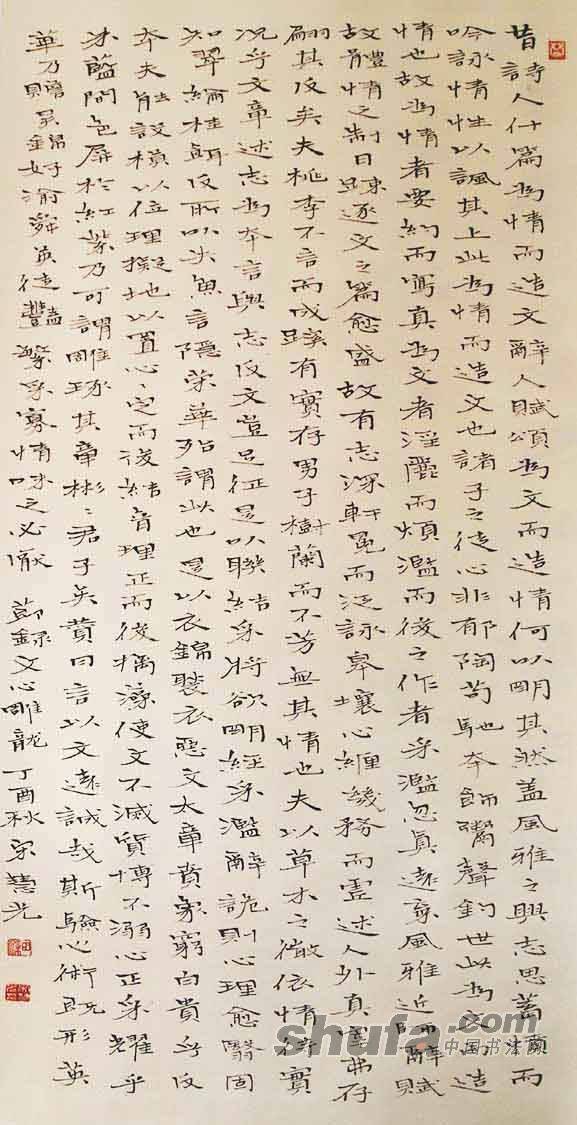 昔詩人什篇為情而造文辭人賦頌為文而造情何以明其然蓋風雅之興志思蓄憤而
吟詠情性以諷其上此為情而造文也諸子之徒心非郁陶苟馳夸飾鬻聲釣世此為文而造
情也故為情者要約而寫真為文者淫麗而煩濫而後之作者采濫忽真遠棄風雅近師辭賦
故體情之制日疎逐文之篇愈盛故有志深軒冕而泛詠皋壤心纏幾務而虛述人外真宰弗存
翩其反矣夫桃李不言而成蹊有實存男子樹蘭而不芳無其情也夫以草木之微依情待實
況乎文章述志為本言與志反文豈足征是以聯結采將欲明經采濫辭詭則心理愈翳固
知翠綸桂餌反所以失魚言隱榮華殆謂此也是以衣錦褧衣惡文太章賁象窮白貴乎反
本夫能設模以位理擬地以置心〻定而後結音理正而後摛藻使文不滅質博不溺心正采耀乎
朱藍間色屏於紅紫乃可謂雕琢其章彬〻君子矣贊曰言以文遠誠哉斯驗心術既形英
華乃贍吳錦好渝舜英徒豔繁采寡情味之必厭 節錄文心雕龍 丁酉秋 宋慧光
shufa.com
中国书法网